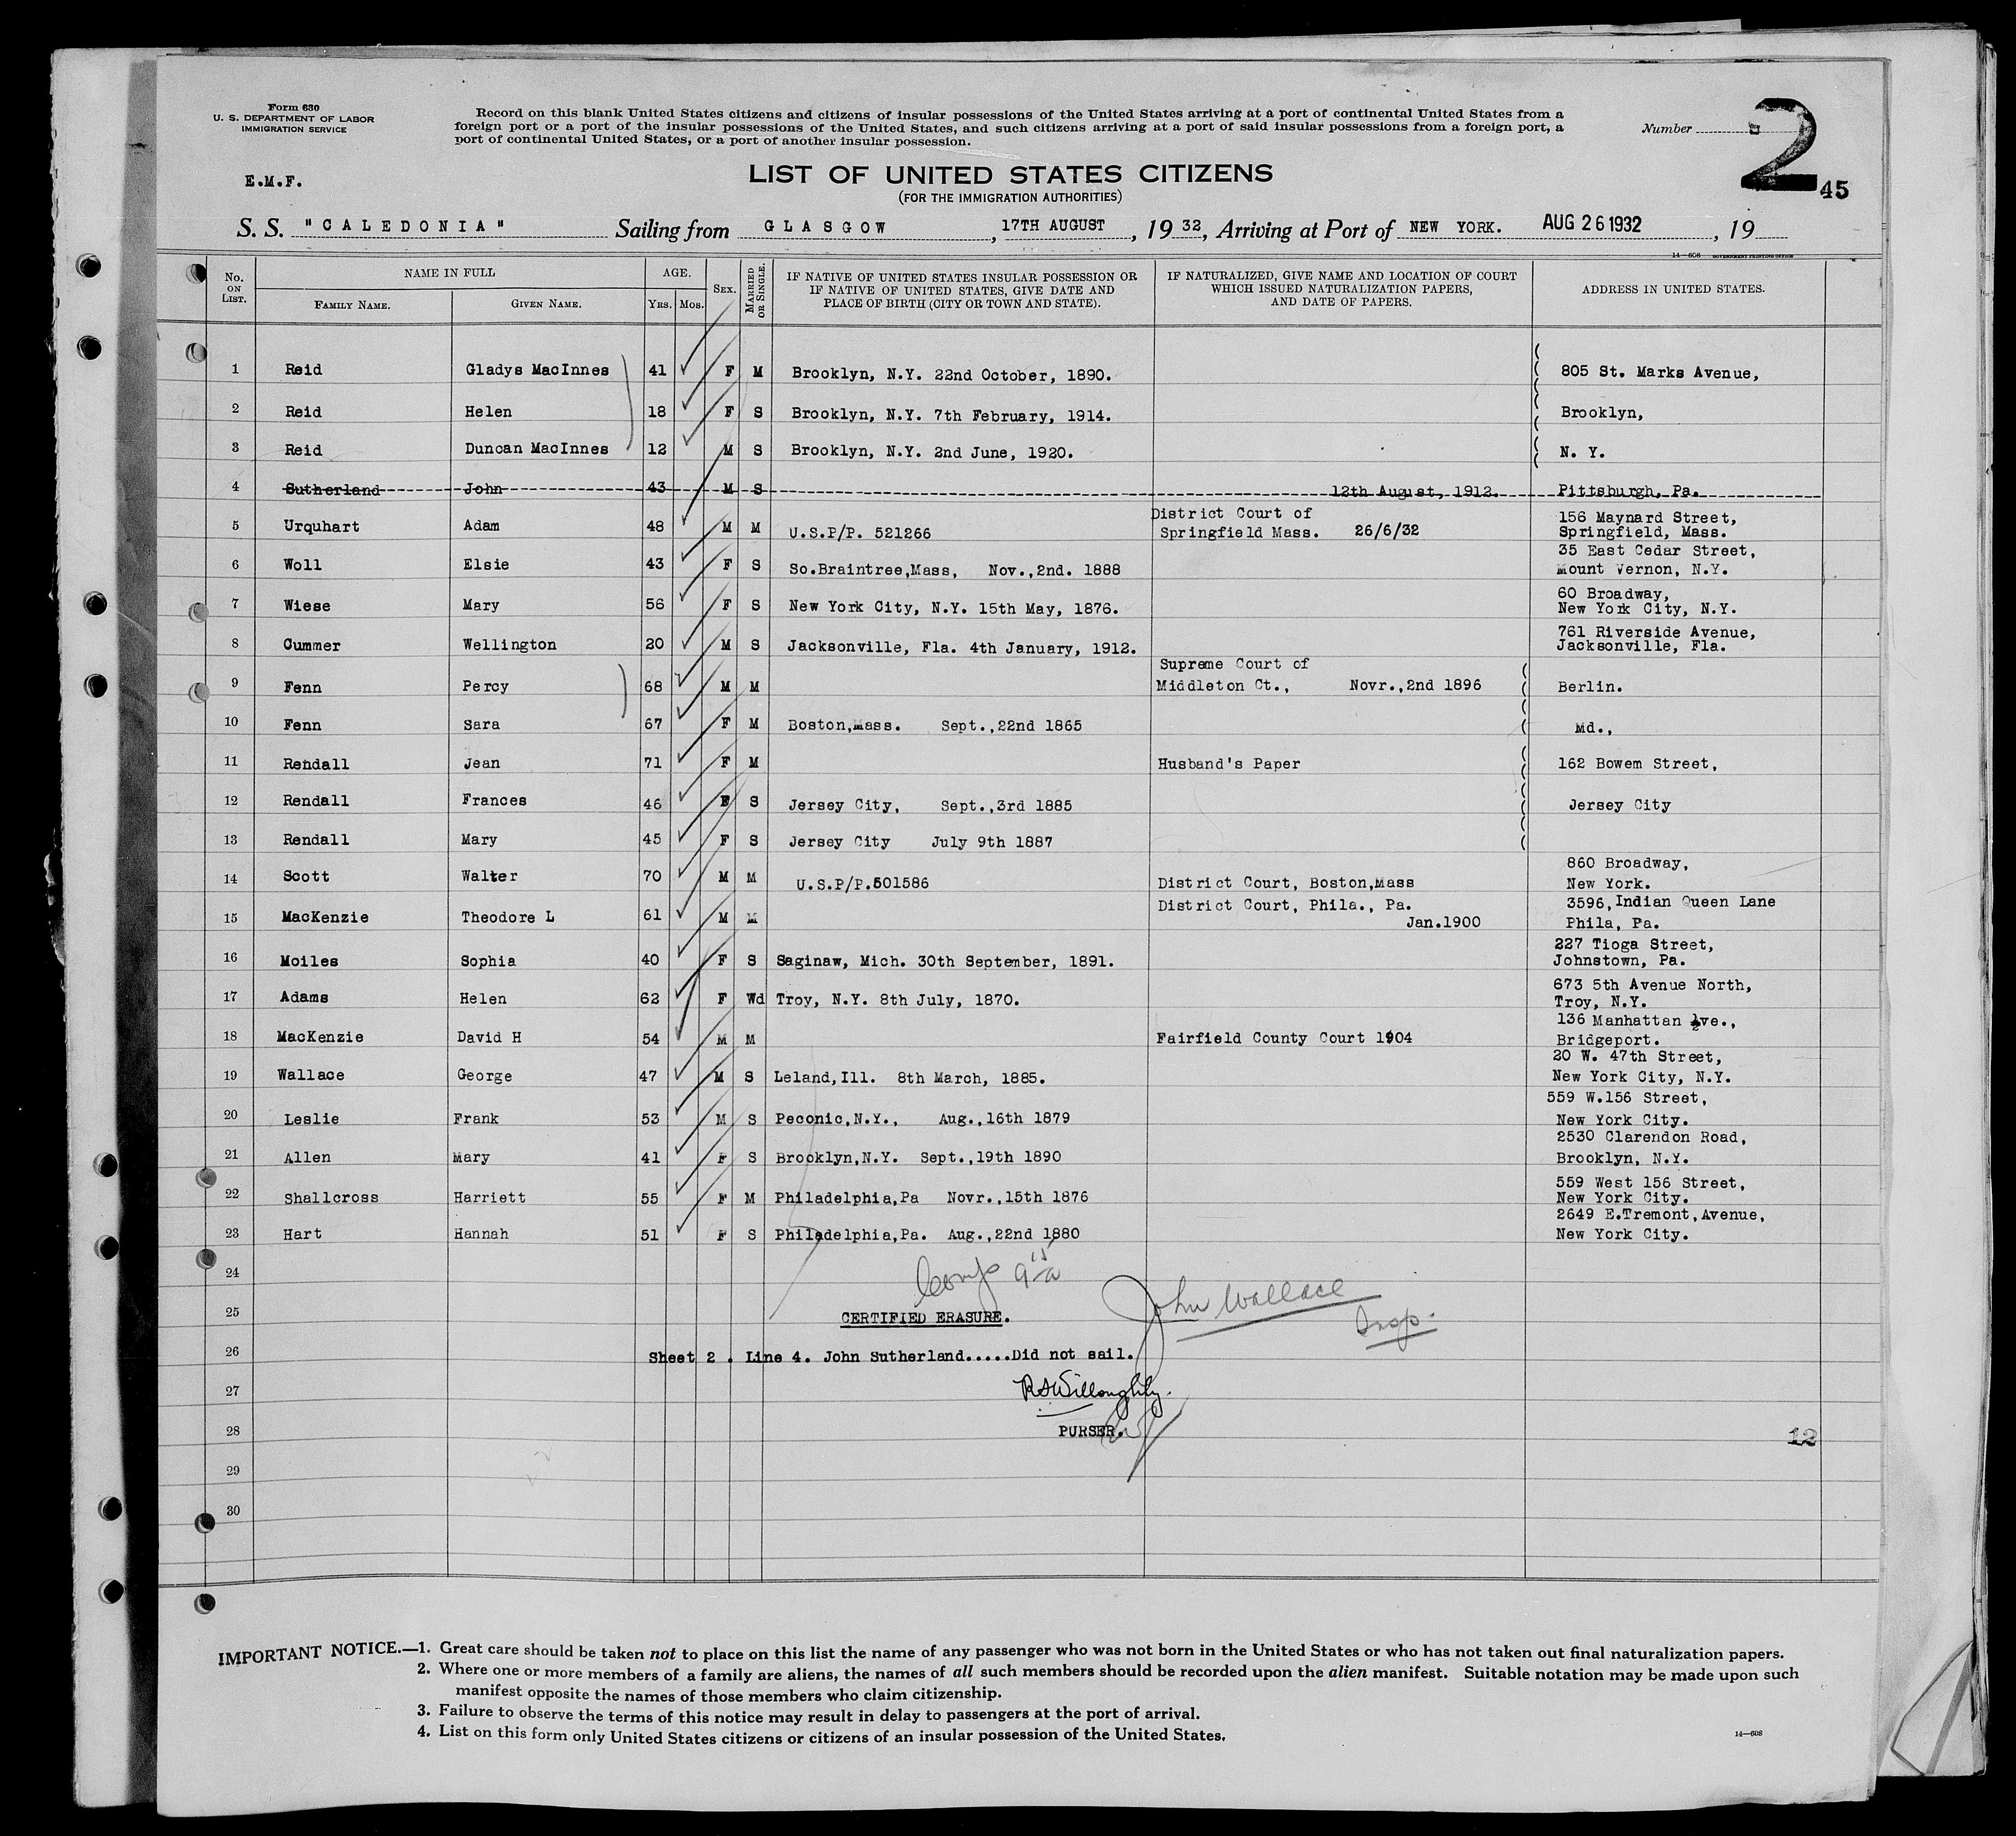 Form 630
U. S. DEPARTMENT OF LABOR
IMMIGRATION SERVICE
Record on this blank United States citizens and citizens of insular possessions of the United States arriving at a port of continental United States from a
foreign port or a port of the insular possessions of the United States, and such citizens arriving at a port of said insular possessions from a foreign port, a
port of continental United States, or a port of another insular possession.
Number
2
45
E.M.F.
LIST OF UNITED STATES CITIZENS
(FOR THE IMMIGRATION AUTHORITIES)
S. S. "CALEDONIA" Sailing from GLASGOW, 17TH AUGUST, 1932, Arriving at Port of NEW YORK. AUG 26 1932, 19
14—608 GOVERNMENT PRINTING OFFICE
No. ON LIST. NAME IN FULL FAMILY NAME. GIVEN NAME. AGE. YRS. MOS. SEX. MARRIED OR SINGLE. IF NATIVE OF UNITED STATES INSULAR POSSESSION OR IF NATIVE OF UNITED STATES, GIVE DATE AND PLACE OF BIRTH (CITY OR TOWN AND STATE). IF NATURALIZED, GIVE NAME AND LOCATION OF COURT WHICH ISSUED NATURALIZATION PAPERS, AND DATE OF PAPERS. ADDRESS IN UNITED STATES.
1 Reid Gladys MacInnes 41 F M Brooklyn, N.Y. 22nd October, 1890. 805 St. Marks Avenue,
2 Reid Helen 18 F S Brooklyn, N.Y. 7th February, 1914. Brooklyn,
3 Reid Duncan MacInnes 12 M S Brooklyn, N.Y. 2nd June, 1920. N. Y.
4 Sutherland John 43 M S 12th August, 1912. Pittsburgh, Pa.
5 Urquhart Adam 48 M M U.S.P/P. 521266 District Court of Springfield Mass. 26/6/32 156 Maynard Street, Springfield, Mass.
6 Woll Elsie 43 F S So.Braintree,Mass, Nov.,2nd. 1888 35 East Cedar Street, Mount Vernon, N.Y.
7 Wiese Mary 56 F S New York City, N.Y. 15th May, 1876. 60 Broadway, New York City, N.Y.
8 Cummer Wellington 20 M S Jacksonville, Fla. 4th January, 1912. 761 Riverside Avenue, Jacksonville, Fla.
9 Fenn Percy 68 M M Supreme Court of Middleton Ct., Novr.,2nd 1896 Berlin.
10 Fenn Sara 67 F M Boston,Mass. Sept.,22nd 1865 Md.,
11 Rendall Jean 71 F M Husband's Paper 162 Bowem Street,
12 Rendall Frances 46 F S Jersey City, Sept.,3rd 1885 Jersey City
13 Rendall Mary 45 F S Jersey City July 9th 1887
14 Scott Walter 70 M M U.S.P/P.501586 District Court, Boston,Mass 860 Broadway, New York.
15 MacKenzie Theodore L 61 M M District Court, Phila., Pa. Jan.1900 3596,Indian Queen Lane Phila, Pa.
16 Moiles Sophia 40 F S Saginaw, Mich. 30th September, 1891. 227 Tioga Street, Johnstown, Pa.
17 Adams Helen 62 F Wd Troy, N.Y. 8th July, 1870. 673 5th Avenue North, Troy, N.Y.
18 MacKenzie David H 54 M M Fairfield County Court 1904 136 Manhattan Ave., Bridgeport.
19 Wallace George 47 M S Leland,Ill. 8th March, 1885. 20 W. 47th Street, New York City, N.Y.
20 Leslie Frank 53 M S Peconic,N.Y., Aug.,16th 1879 559 W.156 Street, New York City.
21 Allen Mary 41 F S Brooklyn,N.Y. Sept.,19th 1890 2530 Clarendon Road, Brooklyn, N.Y.
22 Shallcross Harriett 55 F M Philadelphia,Pa Novr.,15th 1876 559 West 156 Street, New York City.
23 Hart Hannah 51 F S Philadelphia,Pa. Aug.,22nd 1880 2649 E.Tremont,Avenue, New York City.
24
25 CERTIFIED ERASURE. John Wallace Insp.
26 Sheet 2 . Line 4. John Sutherland.....Did not sail.
27 R Willoughby.
28 PURSER. 12
29
30
IMPORTANT NOTICE.—1. Great care should be taken not to place on this list the name of any passenger who was not born in the United States or who has not taken out final naturalization papers.
2. Where one or more members of a family are aliens, the names of all such members should be recorded upon the alien manifest. Suitable notation may be made upon such
manifest opposite the names of those members who claim citizenship.
3. Failure to observe the terms of this notice may result in delay to passengers at the port of arrival.
4. List on this form only United States citizens or citizens of an insular possession of the United States.
14—608